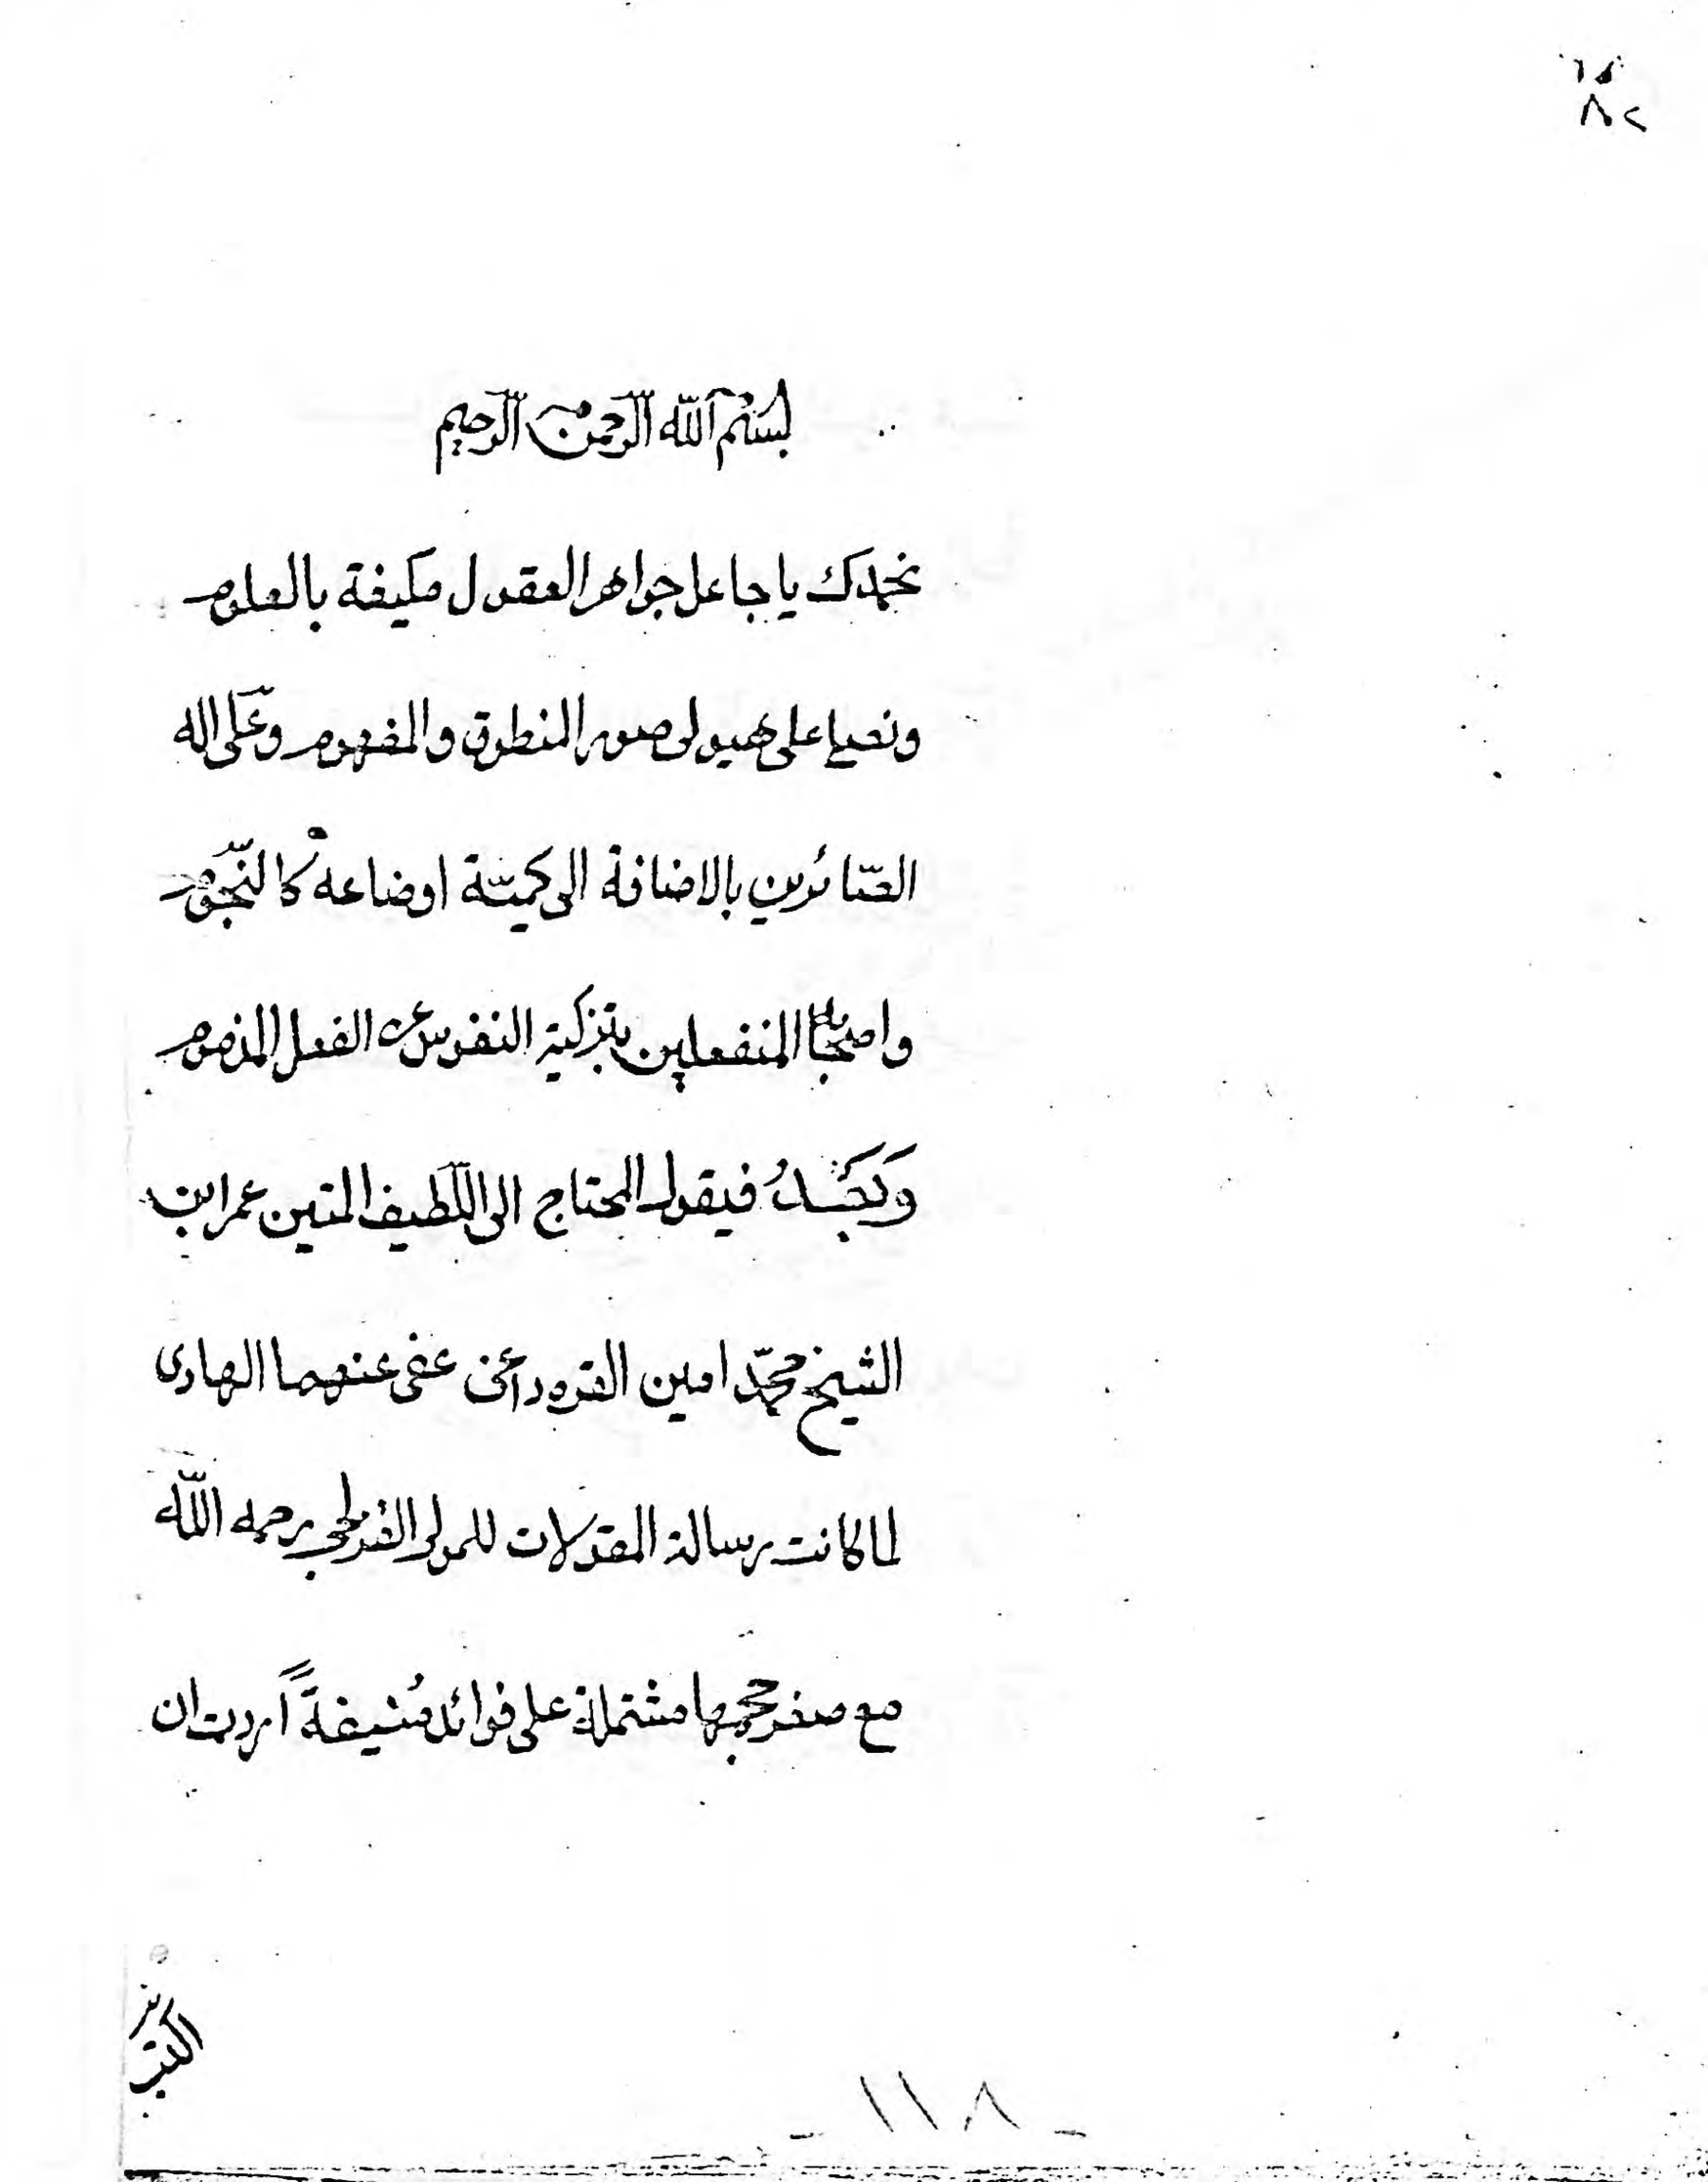 بسم الله الرحمن الرحيم
نحمدك يا جاعل جواهر العقول مكيفة بالعلوم
ونصلي على هيولى صور المنطوق والمفهوم وعلى اله
الصّائرين بالاضافة الى كميّة اوضاعه كالنّجوم
واصحابه المنفعلين بتزكية النفوس عن الفعل المذموم
وَبَعْدُ فيقول المحتاج الى اللّطيف المتين عمر ابن
الشيخ محمّد امين القره داغى عفى عنهما الهادى
لما كانت رسالة المقولات للمولى القزلجي رحمه اللّه
مع صغر حجمها مشتملة على فوائد مُنيفةً أردت ان
اكتب
- ١١٨ -